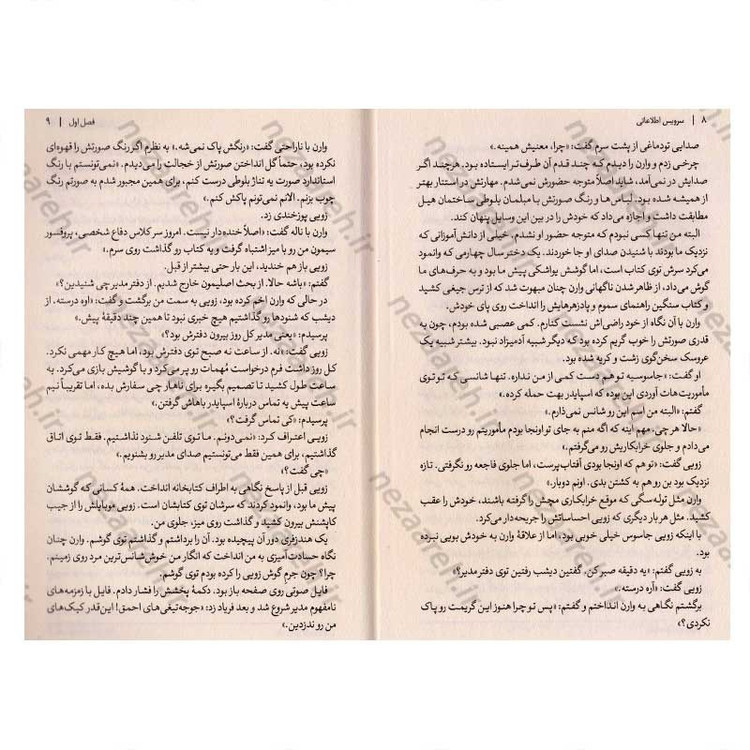 ۸ | سرویس اطلاعاتی
صدایی تودماغی از پشت سرم گفت: «چرا، معنیش همینه.»
چرخی زدم و وارن را دیدم که چند قدم آن طرف‌تر ایستاده بود. هرچند اگر
صدایش در نمی‌آمد، شاید اصلاً متوجه حضورش نمی‌شدم. مهارتش در استتار بهتر
از همیشه شده بود. لباس‌ها و رنگ صورتش با مبلمان بلوطی ساختمان هیل
مطابقت داشت و اجازه می‌داد که خودش را در بین این وسایل پنهان کند.
البته من تنها کسی نبودم که متوجه حضور او نشدم. خیلی از دانش‌آموزانی که
نزدیک ما بودند با شنیدن صدای او جا خوردند. یک دختر سال چهارمی که وانمود
می‌کرد سرش توی کتاب است، اما گوشش یواشکی پیش ما بود و به حرف‌های ما
گوش می‌داد، از ظاهر شدن ناگهانی وارن چنان مبهوت شد که از ترس جیغی کشید
و کتاب سنگین راهنمای سموم و پادزهرهایش را انداخت روی پای خودش.
وارن با آن نگاه از خود راضی‌اش نشست کنارم. کمی عصبی شده بودم، چون به
قدری صورتش را خوب گریم کرده بود که دیگر شبیه آدمیزاد نبود. بیشتر شبیه یک
عروسک سخن‌گوی زشت و کریه شده بود.
او گفت: «جاسوسیه تو هم دست کمی از من نداره. تنها شانسی که تو توی
مأموریت هات آوردی این بوده که اسپایدر بهت حمله کرده.»
گفتم: «البته من اسم این رو شانس نمی‌ذارم.»
«حالا هر چی. مهم اینه که اگه منم به جای تو اونجا بودم مأموریتم رو درست انجام
می‌دادم و جلوی خرابکاریش رو می‌گرفتم.»
زویی گفت: «تو هم که اونجا بودی آفتاب‌پرست، اما جلوی فاجعه رو نگرفتی. تازه
نزدیک بود بن رو هم به کشتن بدی. اونم دوبار.»
وارن مثل توله‌سگی که موقع خرابکاری مچش را گرفته باشند، خودش را عقب
کشید. مثل هر بار دیگری که زویی احساساتش را جریحه‌دار می‌کرد.
با اینکه زویی جاسوس خیلی خوبی بود، اما از علاقهٔ وارن به خودش بویی نبرده
بود.
به زویی گفتم: «یه دقیقه صبر کن. گفتین دیشب رفتین توی دفتر مدیر؟»
زویی گفت: «آره درسته.»
برگشتم نگاهی به وارن انداختم و گفتم: «پس تو چرا هنوز این گریمت رو پاک
نکردی؟»
فصل اول | ۹
وارن با ناراحتی گفت: «رنگش پاک نمی‌شه.» به نظرم اگر رنگ صورتش را قهوه‌ای
نکرده بود، حتماً گل انداختن صورتش از خجالت را می‌دیدم. «نمی‌تونستم با رنگ
استاندارد صورت یه تناژ بلوطی درست کنم، برای همین مجبور شدم به صورتم رنگ
چوب بزنم. الانم نمی‌تونم پاکش کنم.»
زویی پوزخندی زد.
وارن با ناله گفت: «اصلاً خنده‌دار نیست. امروز سر کلاس دفاع شخصی، پروفسور
سیمون من رو با میز اشتباه گرفت و یه کتاب رو گذاشت روی سرم.»
زویی باز هم خندید، این بار حتی بیشتر از قبل.
گفتم: «باشه حالا. از بحث اصلیمون خارج نشیم. از دفتر مدیر چی شنیدین؟»
در حالی که وارن اخم کرده بود، زویی به سمت من برگشت و گفت: «اوه درسته. از
دیشب که شنودها رو گذاشتیم هیچ خبری نبود تا همین چند دقیقهٔ پیش.»
پرسیدم: «یعنی مدیر کل روز بیرون دفترش بود؟»
زویی گفت: «نه. از ساعت نه صبح توی دفترش بود، اما هیچ کار مهمی نکرد.
کل روز داشت فرم درخواست مُهمات رو پر می‌کرد و با گوشیش بازی می‌کرد. یه
ساعت طول کشید تا تصمیم بگیره برای ناهار چی سفارش بده، اما تقریباً نیم
ساعت پیش یه تماس دربارهٔ اسپایدر باهاش گرفتن.»
پرسیدم: «کی تماس گرفت؟»
زویی اعتراف کرد: «نمی‌دونم. ما توی تلفن شنود نذاشتیم. فقط توی اتاق
گذاشتیم، برای همین فقط می‌تونستیم صدای مدیر رو بشنویم.»
«چی گفت؟»
زویی قبل از پاسخ نگاهی به اطراف کتابخانه انداخت. همهٔ کسانی که گوششان
پیش ما بود، وانمود کردند که سرشان توی کتابشان است. زویی موبایلش را از جیب
کاپشنش بیرون کشید و گذاشت روی میز، جلوی من.
یک هندزفری دور آن پیچیده بود. آن را برداشتم و گذاشتم توی گوشم. وارن چنان
نگاه حسادت‌آمیزی به من انداخت که انگار من خوش‌شانس‌ترین مرد روی زمینم.
چرا؟ چون جرمِ گوش زویی را کرده بودم توی گوشم.
فایل صوتی روی صفحه باز بود. دکمهٔ پخشش را فشار دادم. فایل با زمزمه‌های
نامفهوم مدیر شروع شد و بعد فریاد زد: «جوجه‌تیغی‌های احمق! این‌قدر کیک‌های
من رو ندزدین.»
nezaareh.ir